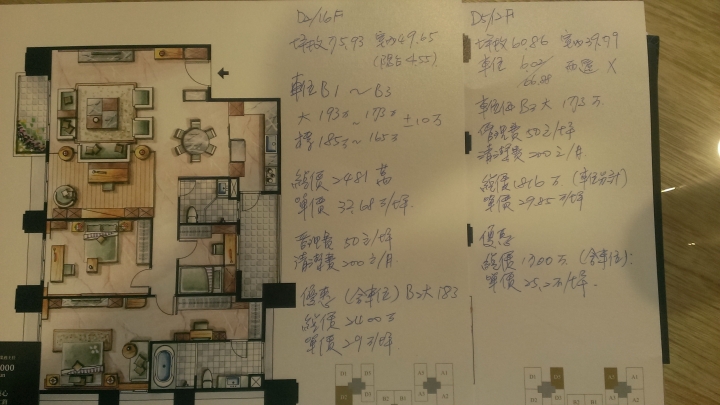 D2/16F
坪數75.93 室內49.65
(陽台4.55)
車位B1~B3
大 193萬~173萬 ±10万
標 185万~165万
總價2481萬
單價32.68万/坪
管理費 50元/坪
清潔費 200元/月
優惠 (含車位) B2大183
總價2200万
單價29万/坪
D5/12F
坪數60.86 室內39.79
車位 6.02
車位B2大 173万
管理費50元/坪
清潔費200元/月
總價1816万 (車位另計)
單價29.85万/坪
優惠
總價1700万 (含車位):
單價25.2万/坪